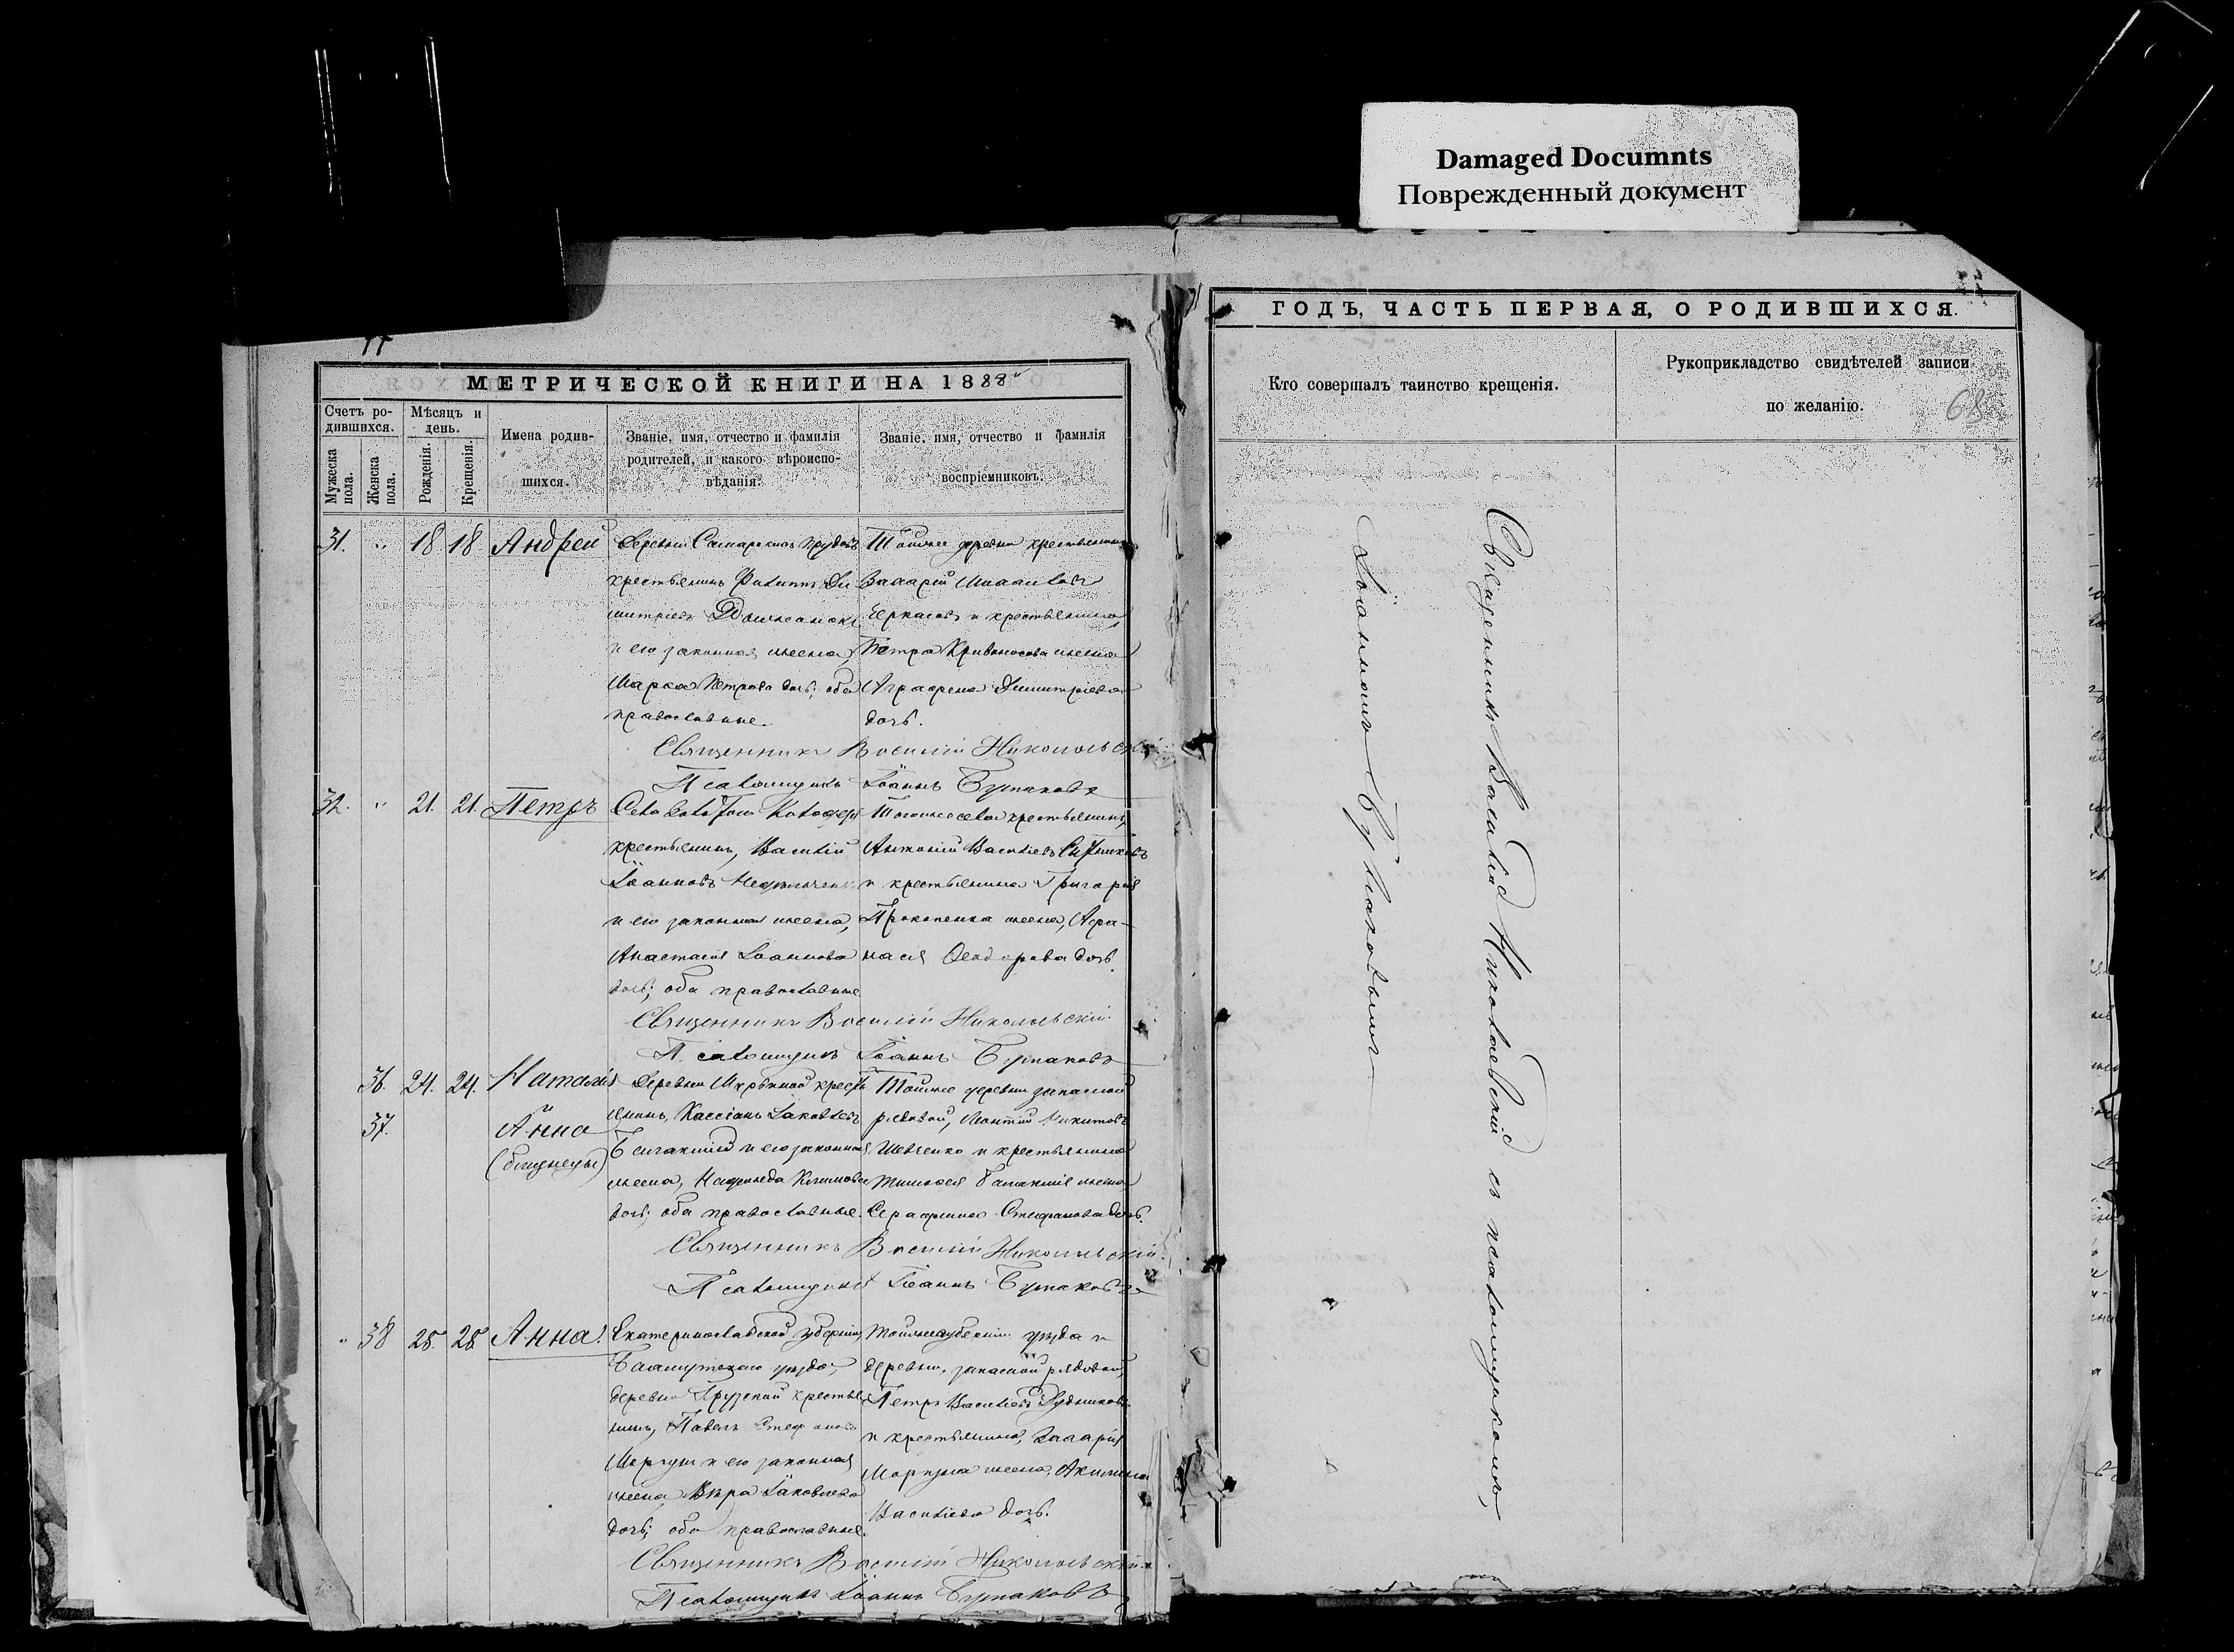 Damaged Documnts
Поврежденный документ
МЕТРИЧЕСКОЙ КНИГИ НА 1888
Счетъ ро-
дившихся.
Мужеска
пола.
Женска
пола.
Мѣсяцъ и
день.
Рожденія.
Крещенія.
Имена родив-
шихся.
Званіе, имя, отчество и фамилія
родителей, и какого вѣроиспо-
вѣданія.
Званіе, имя, отчество и фамилія
воспріемниковъ.
31. " 18 18 Андрей
Деревни
крестьянинъ Филиппъ Ди
митріевъ
и его законная жена,
Марѳа Петрова дочь; оба
православные.
Тойже деревни крестьянинъ
Захарій
Черкасовъ и крестьянина
Петра Кривоносова жена
Аграфена Димитріева
дочь.
Священникъ Василій Никольскій
Псаломщикъ Іоаннъ Бурлаковъ
32. " 21. 21. Петръ
Села
крестьянинъ, Василій
Іоанновъ
и его законная жена,
Анастасія Іоаннова
дочь; оба православные
Тогоже села крестьянинъ,
Антоній Васильевъ
и крестьянина Григорія
Прокопенка жена, Афа-
насія Ѳеодорова дочь.
Священникъ Василій Никольскій
Псаломщикъ Іоаннъ Бурлаковъ
36. 24. 24. Наталія
37. Анна
(близнецы)
Деревни крестья
янинъ, Кассіанъ Іаковлевъ
и его законная
жена, Климова
дочь; оба православные.
Тойже деревни запасной
рядовой, Никитовъ
Шевченко и крестьянина
жена
Серафима Стефанова дочь.
Священникъ Василій Никольскій.
Псаломщикъ Іоаннъ Бурлаковъ
" 38 25. 25. Анна.
Екатеринославской губерніи,
Бахмутскаго уѣзда,
деревни крестья
нинъ, Павелъ Стефановъ
и его законная
жена Вѣра Іаковлева
дочь; оба православные.
Тойже губерніи уѣзда и
деревни, запасной рядовой,
Петръ Васильевъ
и крестьянина, Захарія
жена, Акилина
Васильева дочь.
Священникъ Василій Никольскій
Псаломщикъ Іоаннъ Бурлаковъ
ГОДЪ, ЧАСТЬ ПЕРВАЯ, О РОДИВШИХСЯ.
Кто совершалъ таинство крещенія.
Рукоприкладство свидѣтелей записи
по желанію.
68
Священникъ Василій Никольскій съ псаломщикомъ,
Іоанномъ Бурлаковымъ